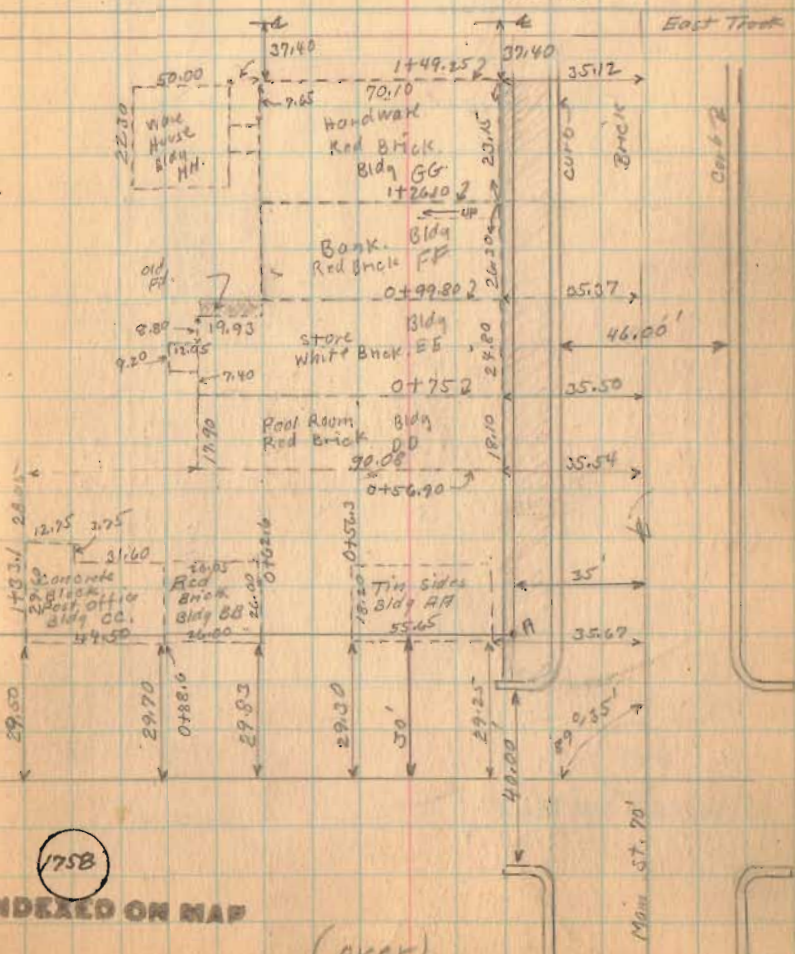 East Track
37.40
37.40
1+49.25
50.00
70.10
35.12
7.65
22.30
Store
House
Bldg
HH.
Hardware
Red Brick.
Bldg GG
1+26.10
23.15
Curb
Brick
Curb
UP
Bank. Bldg
Red Brick FF
26.30
Old
0+99.80
35.37
8.80
19.93
9.20
12.05
7.40
Store Bldg
White Brick. EE
24.80
46.00'
0+75
35.50
Pool Room Bldg
Red Brick DD
17.90
18.10
90.08
35.54
0+56.90
28.05
12.75
2.75
31.60
1+33.1
29.60
Concrete
Block
Post Office
Bldg CC.
44.50
26.05
Red
Brick
Bldg BB
26.00
26.00
0+62.6
0+56.3
18.20
Tin Sides
Bldg AA
55.65
35'
A
35.67
29.50
29.70
0+88.6
29.83
29.30
30'
29.25
40.00
89°35'
Main St. 70'
1758
NDEXED ON MAP
(over)